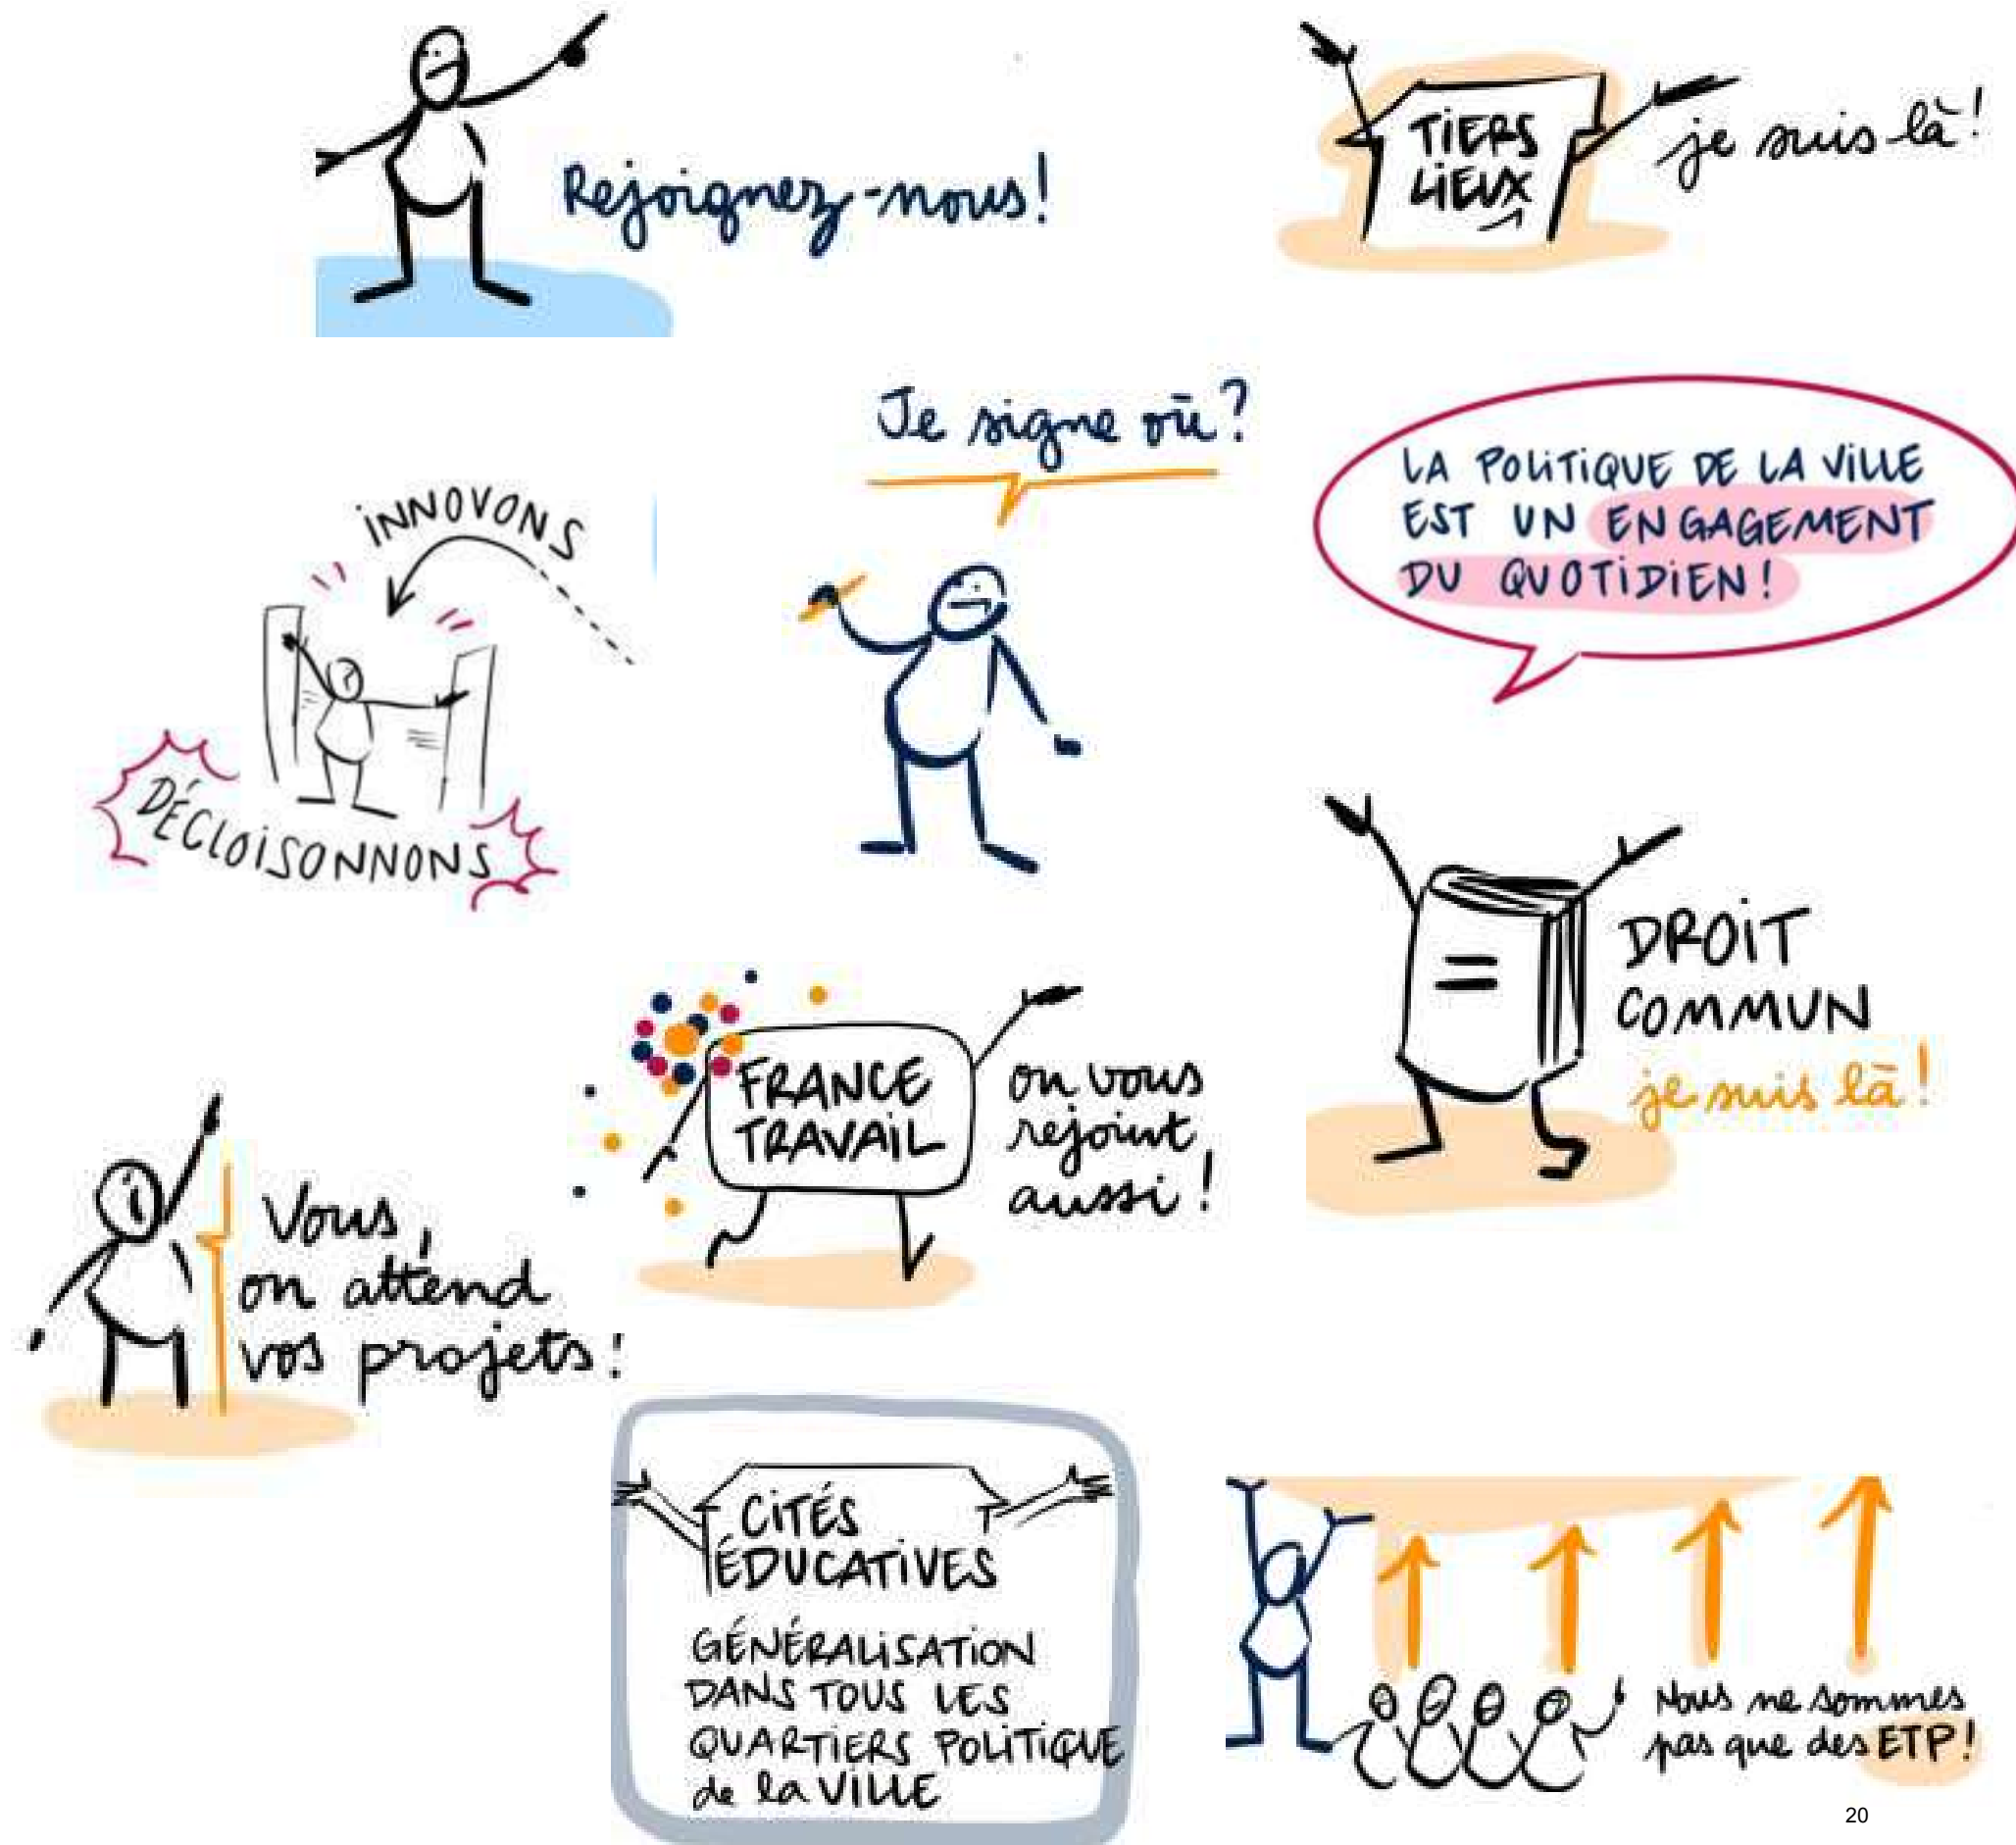 Rejoignez-nous!
TIERS
LIEUX
je suis là!
Je signe où?
LA POLITIQUE DE LA VILLE
EST UN ENGAGEMENT
DU QUOTIDIEN!
INNOVONS
DÉCLOISONNONS
DROIT
COMMUN
je suis là!
FRANCE
TRAVAIL
on vous
rejoint
aussi!
Vous,
on attend
vos projets!
CITÉS
ÉDUCATIVES
GÉNÉRALISATION
DANS TOUS LES
QUARTIERS POLITIQUE
de la VILLE
Nous ne sommes
pas que des ETP!
20